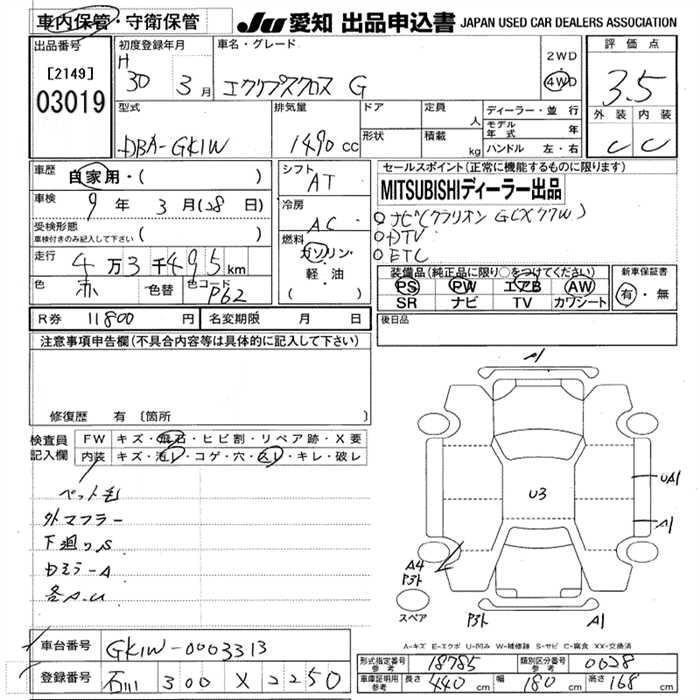 車内保管・守衛保管
JU 愛知 出品申込書 JAPAN USED CAR DEALERS ASSOCIATION
出品番号
[2149]
03019
初度登録年月
H 30 3月
車名・グレード
エクリプスクロス G
2WD
4WD
評価点
3.5
外装 内装
C C
型式
DBA-GK1W
排気量
1490 cc
ドア
形状
定員 人
積載 kg
ディーラー・並行
モデル年式 年
ハンドル 左・右
車歴 自家用・( )
車検 9年 3月(28日)
受検形態
車検付きのみ記入して下さい ( )
走行 4万3千495km
色 赤 色替 色コード P62
シフト
AT
冷房
AC
燃料
ガソリン・軽油
( )
セールスポイント(正常に機能するものに限ります)
MITSUBISHIディーラー出品
○ナビ(クラリオン GCX77W)
○DTV
○ETC
装備品(純正品に限り○をつけてください)
PS PW エアB AW
SR ナビ TV カワシート
新車保証書
有・無
R券 11800円 名変期限 月 日
後日品
注意事項申告欄(不具合内容等は具体的に記入して下さい)
修復歴 有 〔箇所 〕
検査員記入欄
FW キズ・飛石・ヒビ割・リペア跡・X要
内装 キズ・汚レ・コゲ・穴・スレ・キレ・破レ
ペット毛
外マフラー
下廻りS
各A.U
A1
U3
UA1
A1
A4
P3ト
スペア
P3ト
A1
A-キズ E-エクボ U-凹み W-補修跡 S-サビ C-腐食 XX-交換済
車台番号 GK1W-0003313
登録番号 石川 300 X 2250
形式指定番号 参考 18785 類別区分番号 参考 0028
車庫証明用 参考 長さ 440 cm 幅 180 cm 高さ 168 cm